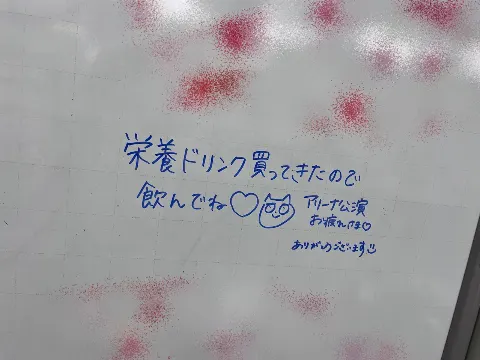 栄養ドリンク買ってきたので
飲んでね♡
アリーナ公演
お疲れさま♡
ありがとうございます